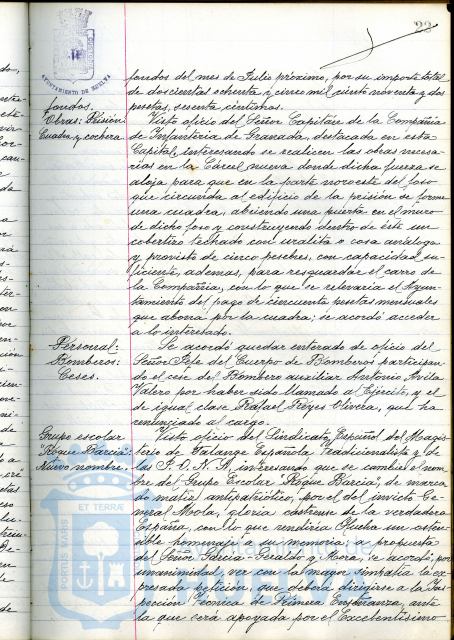 22
AYUNTAMIENTO DE HUELVA
fondos del mes de Julio próximo, por su importe total
de doscientas ochenta y cinco mil ciento noventa y dos
fondos.
pesetas, sesenta céntimos.
Obras: Prisión
Cuadra y cochera
Visto oficio del Señor Capitán de la Compañía
de Infantería de Granada, destacada en esta
Capital, interesando se realicen las obras necesa-
rias en la Cárcel nueva donde dicha fuerza se
aloja para que en la parte noroeste del foso
que circunda al edificio de la prisión se forme
una cuadra, abriendo una puerta en el muro
de dicho foso y construyendo dentro de este un
cobertizo techado con uralita o cosa análoga
y provisto de cinco pesebres, con capacidad su-
ficiente, ademas, para resguardar el carro de
la Compañía, con lo que se relevaria el Ayun-
tamiento del pago de cincuenta pesetas mensuales
que abona por la cuadra; se acordó acceder
a lo interesado.
Personal-
Bomberos:
Ceses.
Se acordó quedar enterado de oficio del
Señor Jefe del Cuerpo de Bomberos participan-
do el cese del Bombero auxiliar Antonio Avila
Valero por haber sido llamado al Ejército, y el
de igual clase Rafael Reyes Olivera, que ha
renunciado al cargo.
Grupo escolar
"Roque Barcia":
Nuevo nombre.
Visto oficio del Sindicato Español del Magis-
terio de Falange Española Tradicionalista y de
las J.O.N.S. interesando que se cambie el nom-
bre del Grupo Escolar "Roque Barcia", de marca-
do matiz antipatriótico, por el del invicto Ge-
neral Mola, gloria castrense de la verdadera
España, con lo que rendiria Huelva un osten-
sible homenaje a su memoria; a propuesta
del Señor Garcia-Geraldo y Mora, se acordó, por
unanimidad, ver con la mayor simpatia la ex-
presada petición, que deberá dirigirse a la Ins-
pección Técnica de Primera Enseñanza, ante
la que será apoyada por el Excelentísimo
PORTUS MARIS ET TERRAE